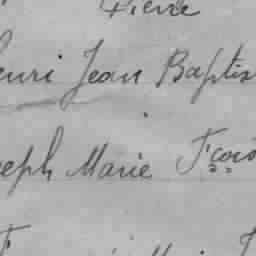 Pierre
enri Jean Baptis
seph Marie Fçois